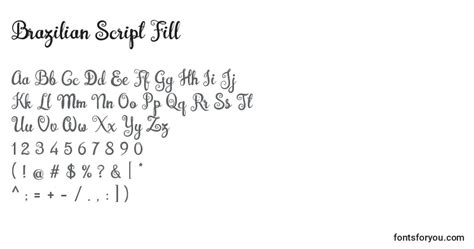 Brazilian Script Fill
Aa Bb Cc Dd Ee Ff Gg Hh Ii Jj
Kk Ll Mm Nn Oo Pp Qq Rr Ss Tt
Uu Vv Ww Xx Yy Zz
1 2 3 4 5 6 7 8 9 0
( ! @ # $ % ? & [ *
^ ; = + - / . , : ] )
fontsforyou.com